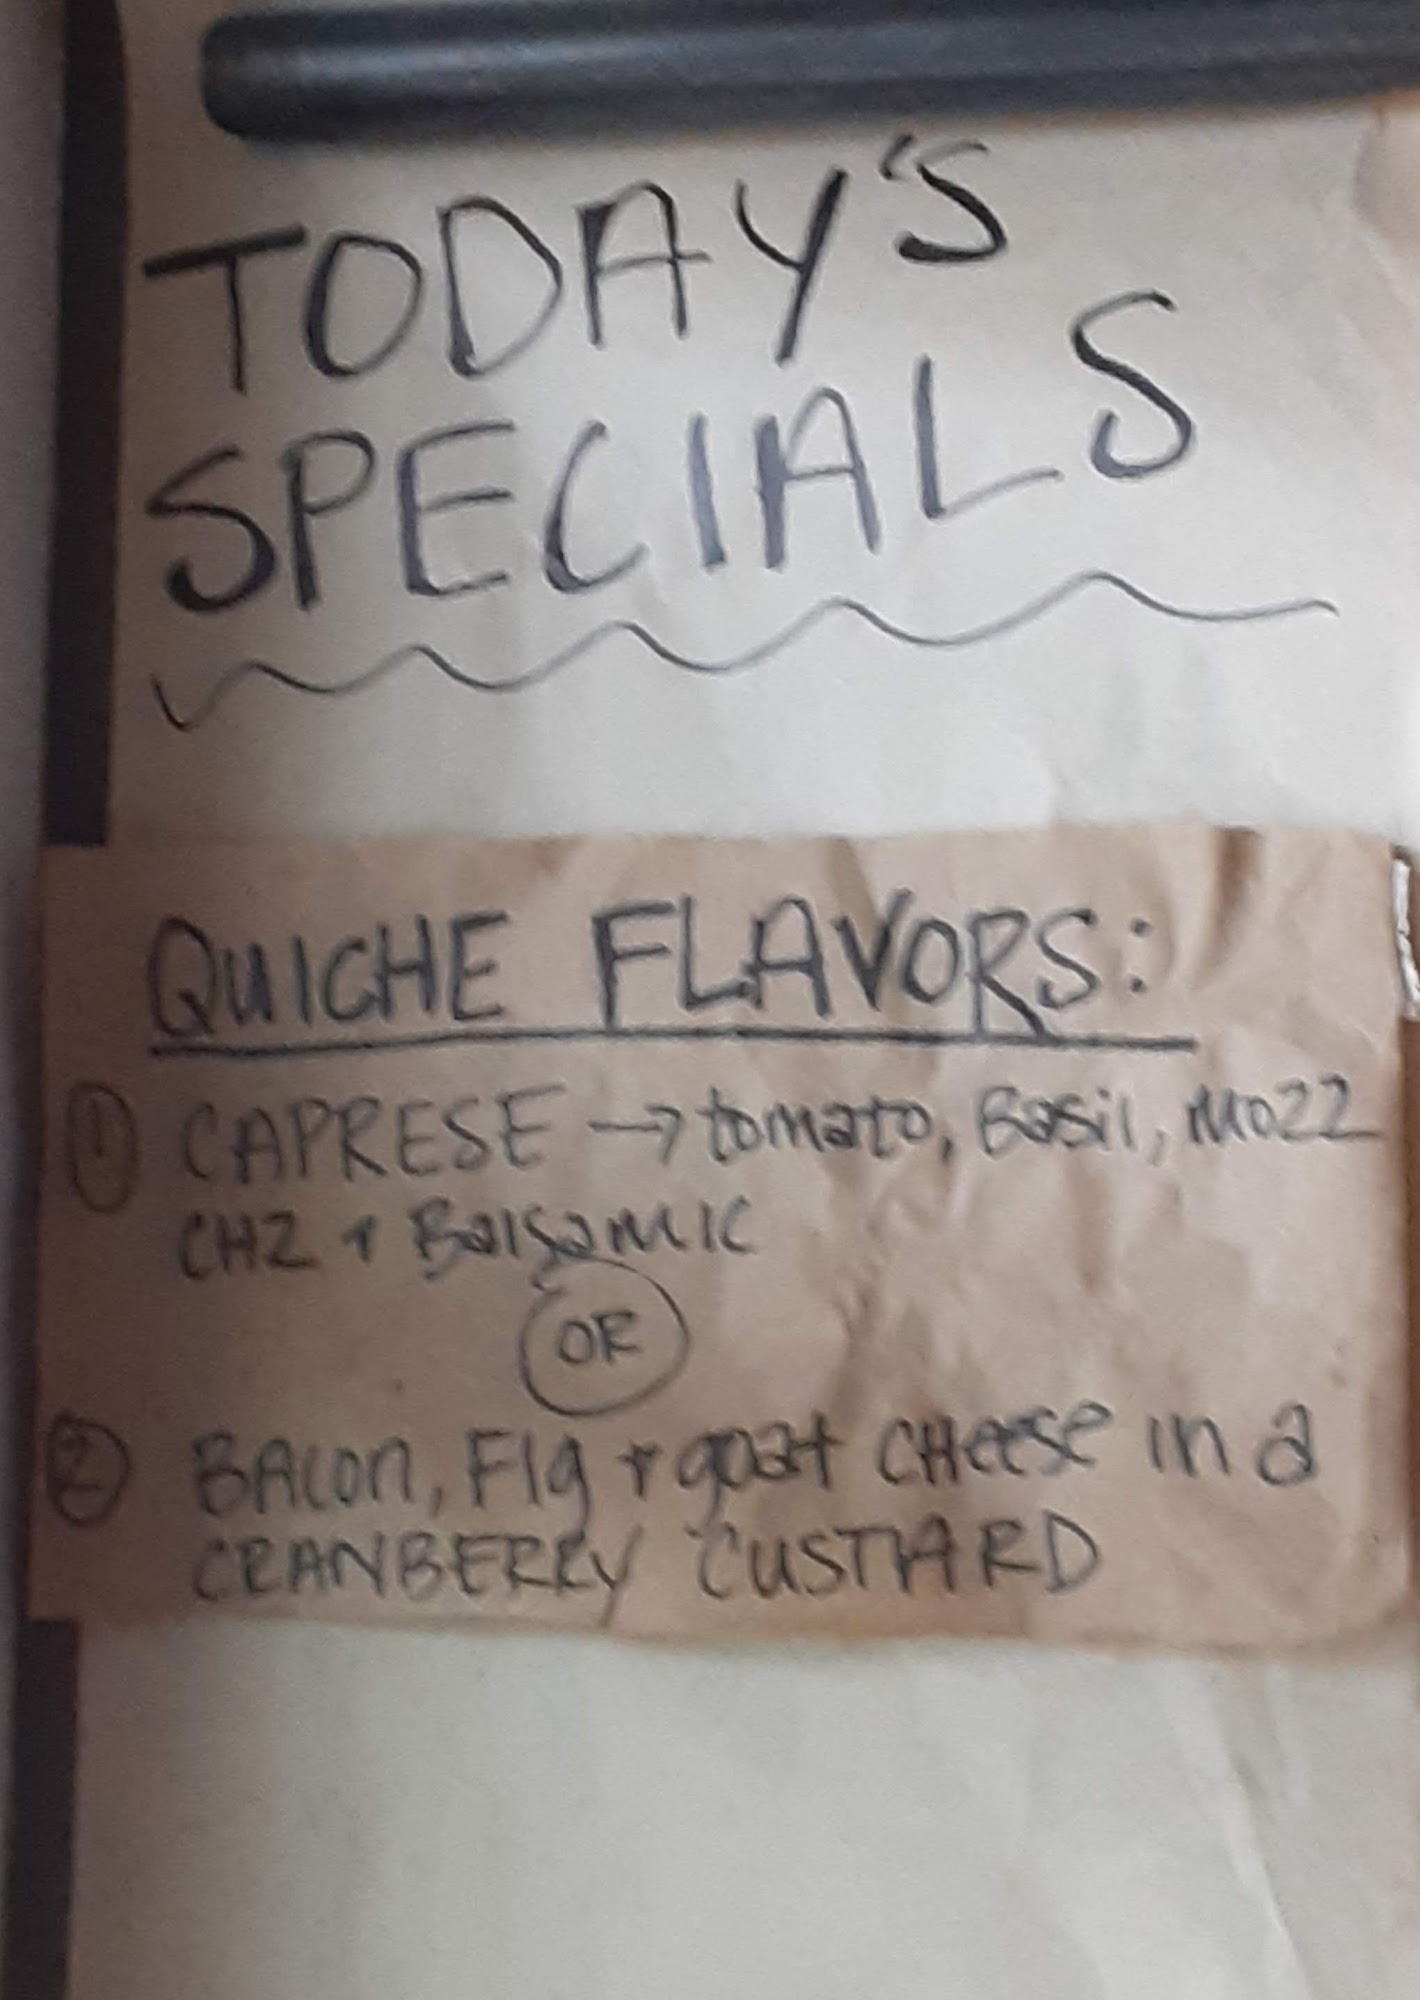 TODAY'S
SPECIALS
QUICHE FLAVORS:
① CAPRESE → tomato, Basil, Mozz
CHZ + Balsamic
OR
② BACON, FIg + goat CHeese in a
CRANBERRY CUSTARD